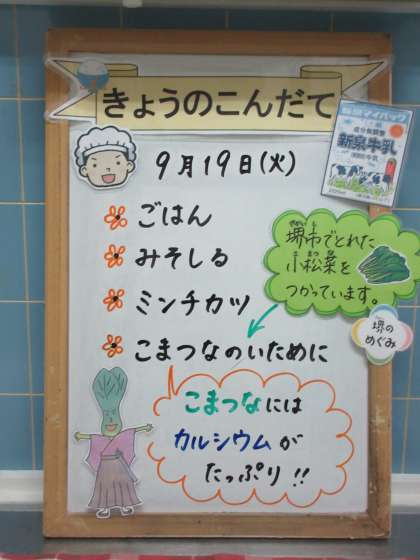 きょうのこんだて
9月19日(火)
ごはん
みそしる
ミンチカツ
こまつなのいために
新泉牛乳
堺市でとれた
小松菜を
つかっています。
堺の
めぐみ
こまつなには
カルシウムが
たっぷり!!